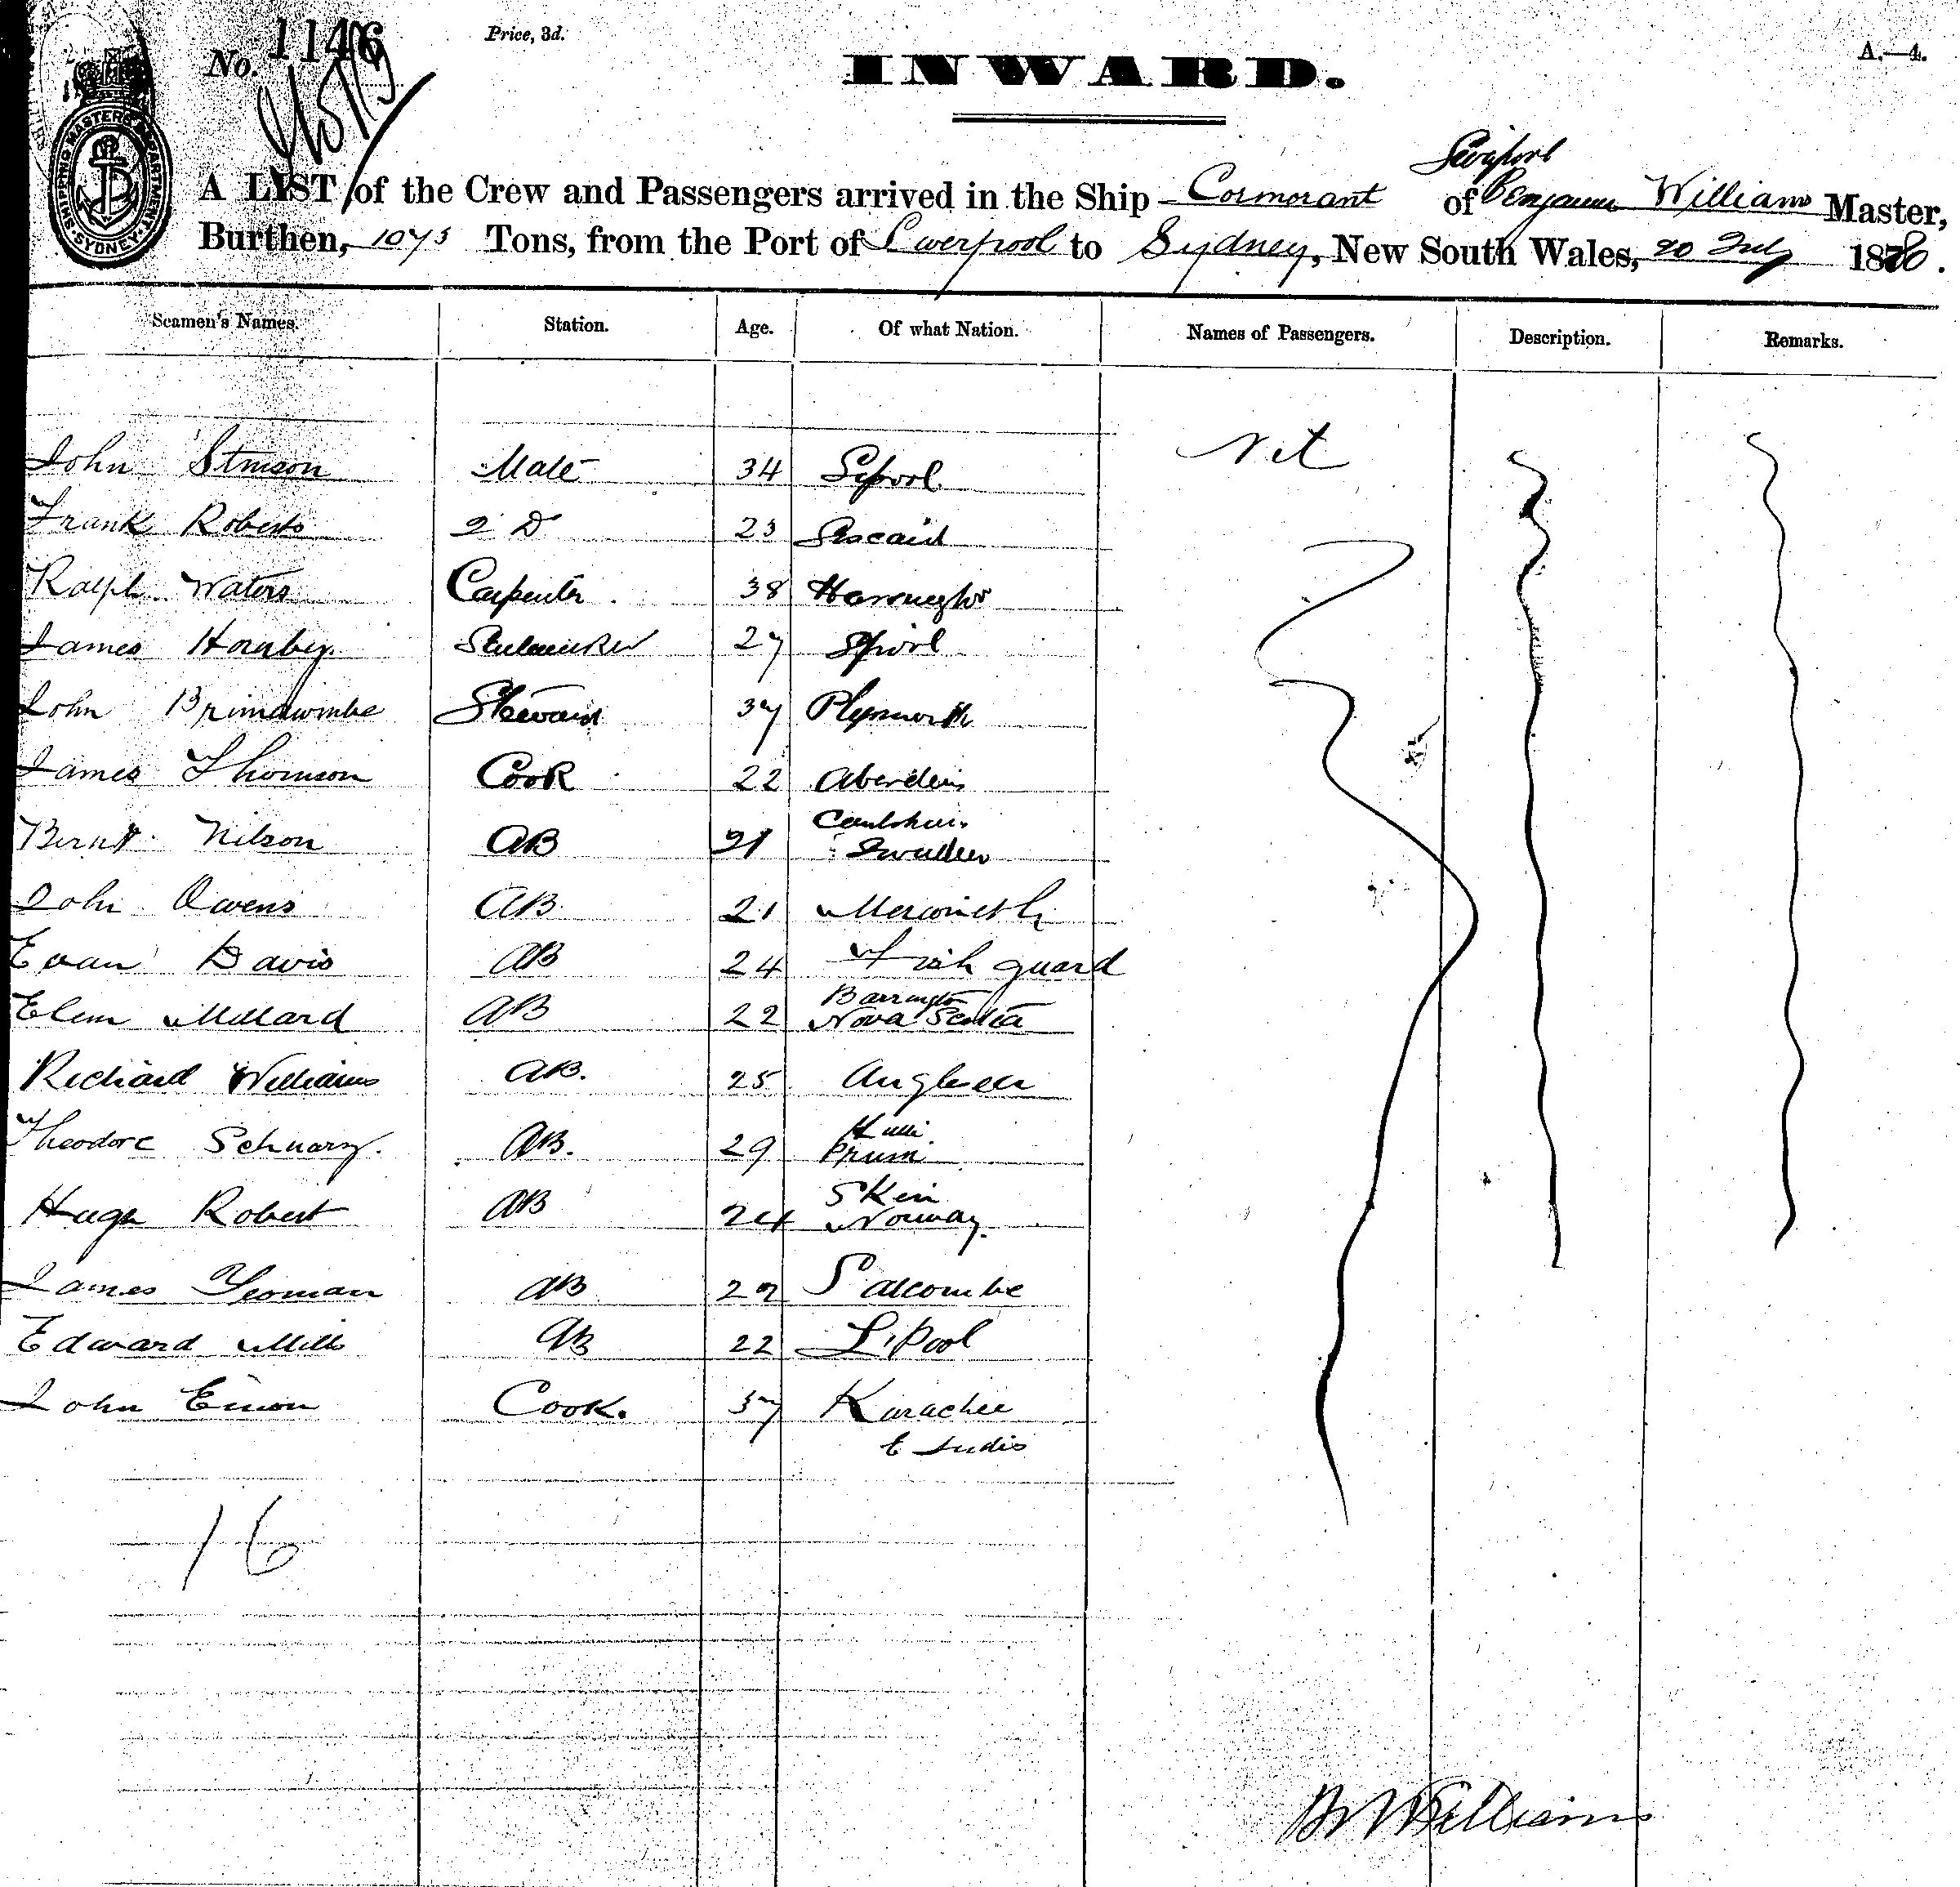 No. 1146
Price, 3d.
INWARD.
A.—4.
SHIPPING MASTER'S DEPARTMENT SYDNEY
A LIST of the Crew and Passengers arrived in the Ship Cormorant of Benjamin Williams Master,
Burthen, 1075 Tons, from the Port of Liverpool to Sydney, New South Wales, 20 July 18
Seamen's Names. Station. Age. Of what Nation. Names of Passengers. Description. Remarks.
John Stinson Mate 34 Lpool Nil
Frank Roberts 2 Do 23
Ralph Waters Carpenter 38
James Hornby 27 Lpool
John Brimacombe Steward 37 Plymouth
James Thomson Cook 22 Aberdeen
Bernt Nilson AB 21
Sweden
John Owens AB 21 Merioneth
Evan Davis AB 24 Fish guard
Barrington
Elem Millard AB 22 Nova Scotia
Richard Williams AB. 25 Anglesea
Theodore AB. 29
Skein
Hugh Robert AB 24 Norway
James Yeoman AB 22 Salcombe
Edward Mills AB 22 L.Pool
John Cook. 37 Karachee
E Indis
16
B Williams